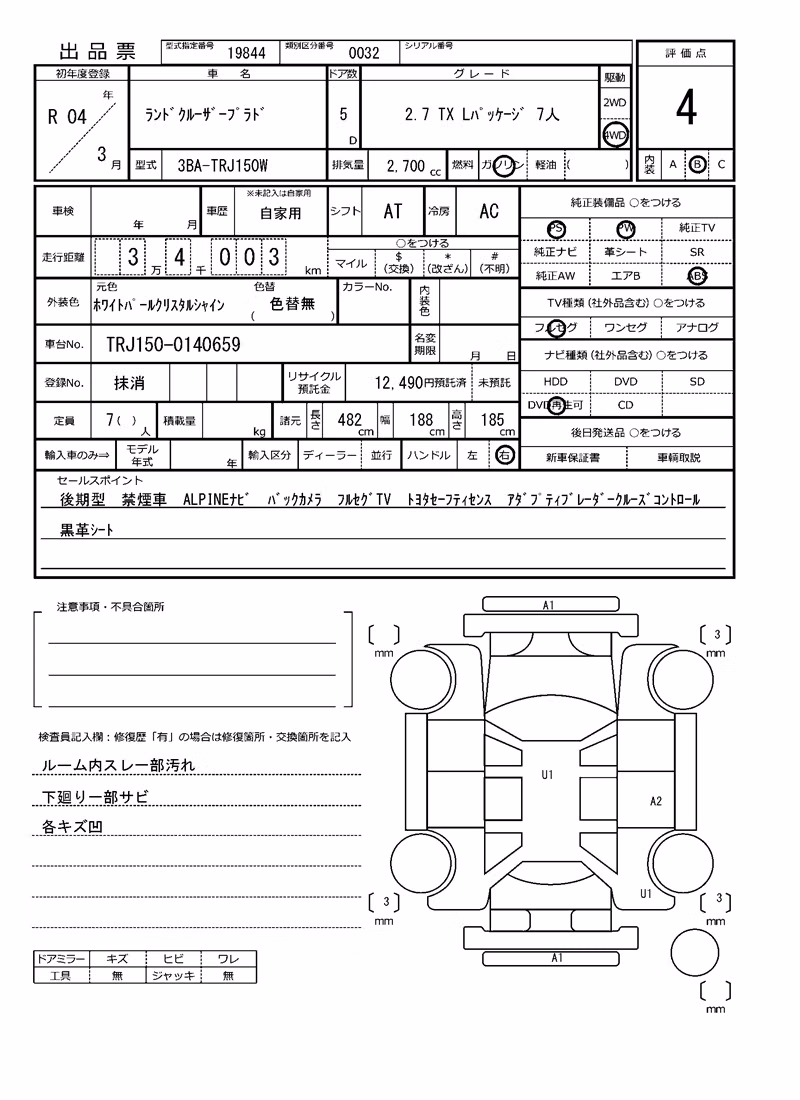 出品票 型式指定番号 19844 類別区分番号 0032 シリアル番号
評価点
4
内装 A B C
初年度登録 車名 ドア数 グレード 駆動
R 04 年 3 月 ランドクルーザープラド 5 D 2.7 TX Lパッケージ 7人 2WD
4WD
型式 3BA-TRJ150W 排気量 2,700 cc 燃料 ガソリン 軽油 ( )
車検 年 月 車歴 ※未記入は自家用 自家用 シフト AT 冷房 AC
走行距離 3万4千003 km ○をつける
マイル $(交換) *(改ざん) #(不明)
外装色 元色 ホワイトパールクリスタルシャイン 色替 ( 色替無 ) カラーNo. 内装色
車台No. TRJ150-0140659 名変期限 月 日
登録No. 抹消 リサイクル預託金 12,490円預託済 未預託
定員 7( )人 積載量 kg 諸元 長さ 482cm 幅 188cm 高さ 185cm
輸入車のみ⇒ モデル年式 年 輸入区分 ディーラー 並行 ハンドル 左 右
純正装備品 ○をつける
PS PW 純正TV
純正ナビ 革シート SR
純正AW エアB ABS
TV種類(社外品含む)○をつける
フルセグ ワンセグ アナログ
ナビ種類(社外品含む)○をつける
HDD DVD SD
DVD再生可 CD
後日発送品 ○をつける
新車保証書 車輌取説
セールスポイント
後期型 禁煙車 ALPINEナビ バックカメラ フルセグTV トヨタセーフティセンス アダプティブレーダークルーズコントロール
黒革シート
注意事項・不具合箇所
検査員記入欄:修復歴「有」の場合は修復箇所・交換箇所を記入
ルーム内スレ一部汚れ
下廻り一部サビ
各キズ凹
ドアミラー キズ ヒビ ワレ
工具 無 ジャッキ 無
A1
[ ] mm
[ 3 ] mm
U1
A2
U1
[ 3 ] mm
[ 3 ] mm
A1
[ ] mm